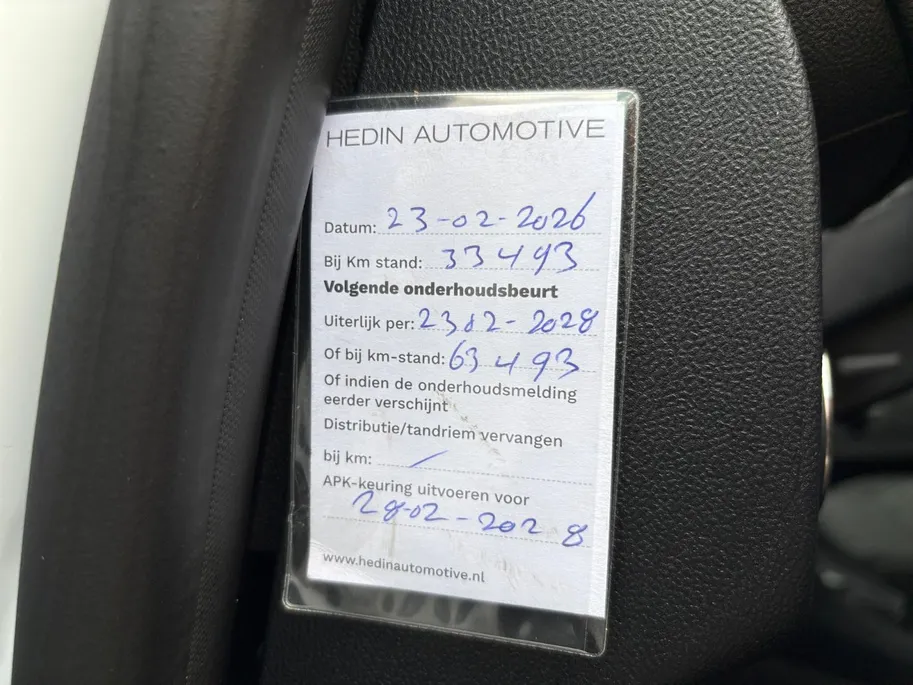 HEDIN AUTOMOTIVE
Datum: 23-02-2026
Bij Km stand: 33493
Volgende onderhoudsbeurt
Uiterlijk per: 2302-2028
Of bij km-stand: 63493
Of indien de onderhoudsmelding
eerder verschijnt
Distributie/tandriem vervangen
bij km: /
APK-keuring uitvoeren voor
28-02-2028
www.hedinautomotive.nl